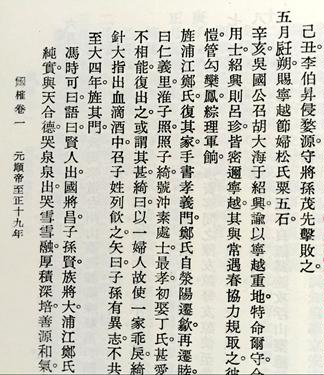 己丑李伯昇侵婺源守將孫茂先擊敗之。
五月壬朔賜寧越節婦松氏粟五石。
辛亥吳國公召胡大海于紹興諭以寧越重地特命爾守
用士紹興則呂珍皆密邇寧越其與常遇春協力規取之彼
愷管勾欒鳳綜理軍餉。
旌浦江鄭氏復其家手書孝義門鄭氏自滎陽遷歙再遷睦
曰仁義里淮子照照子綺號沖素處士最孝初娶丁氏甚愛
不相能復出之或謂其甚綺曰以一婦人故使一家乖戾綺
針大指出血滴酒中召子姓列飲之矢曰子孫有異志不共
至大四年旌其門。
馮時可曰語曰賢人出國將昌子孫賢族將大浦江鄭氏
純實與天合德哭泉泉出哭雪雪融厚積深培善源和氣
國榷卷一
元順帝至正十九年